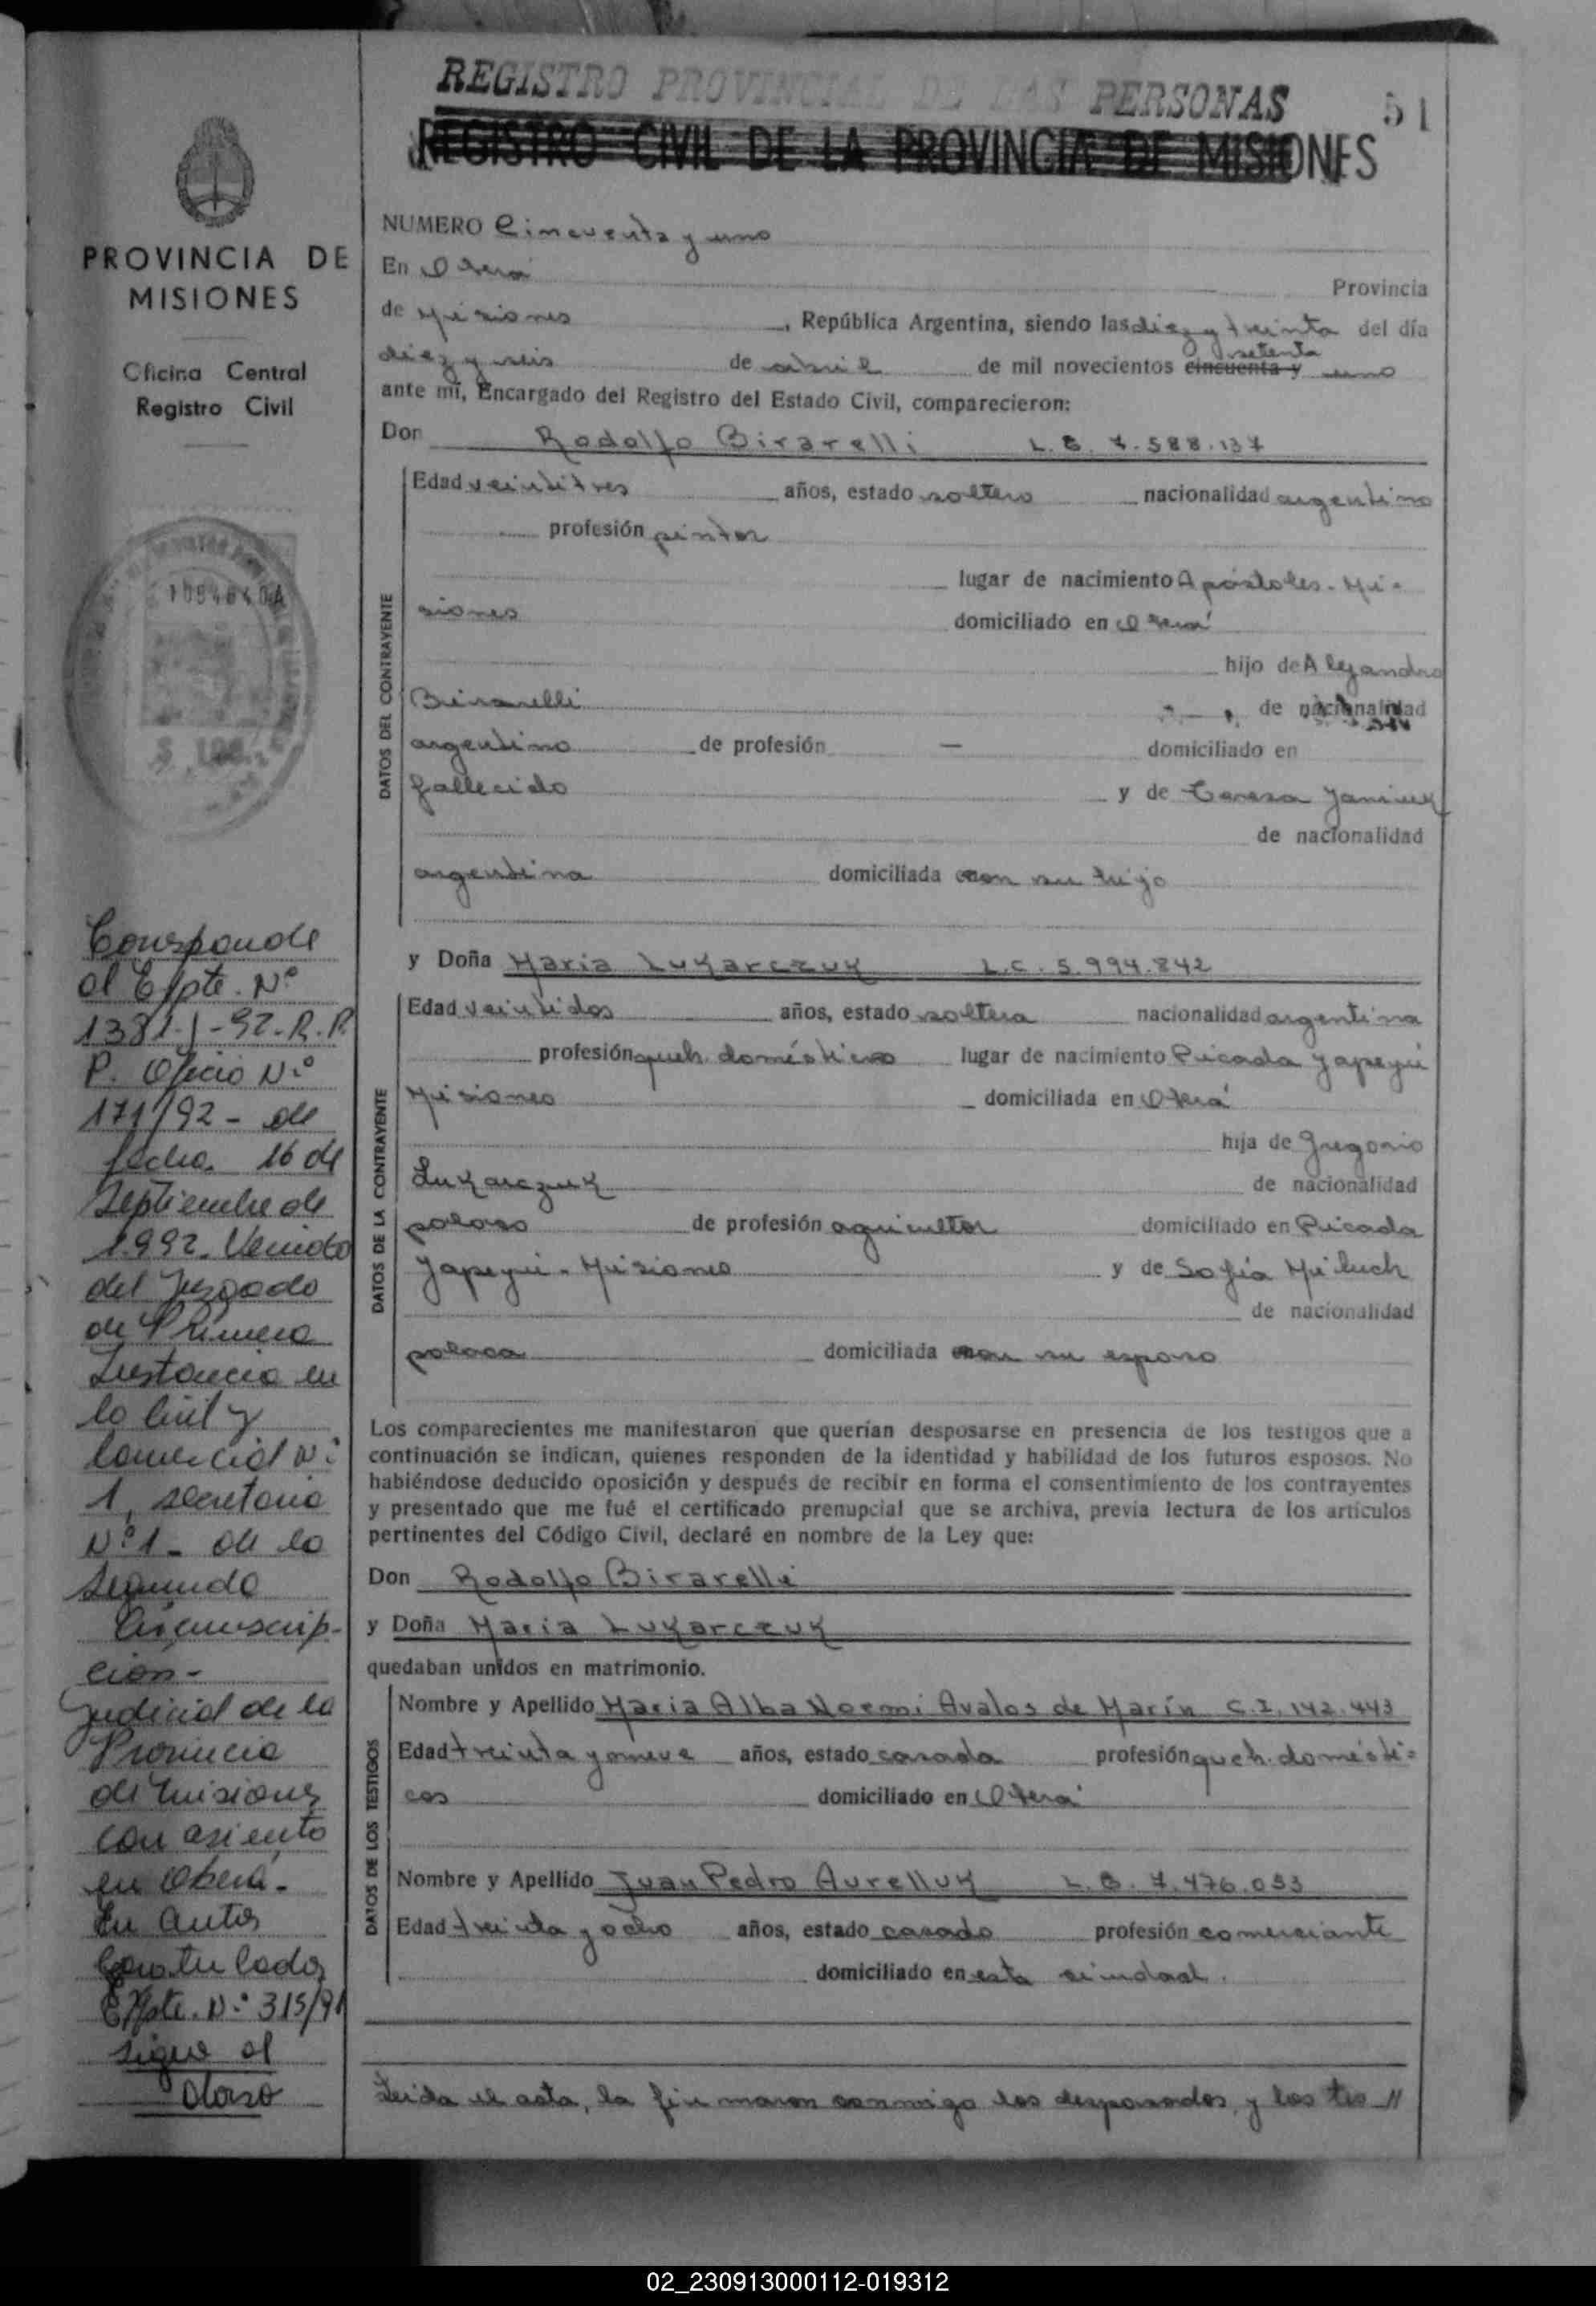 REGISTRO PROVINCIAL DE LAS PERSONAS
51
REGISTRO CIVIL DE LA PROVINCIA DE MISIONES
PROVINCIA DE
MISIONES
Oficina Central
Registro Civil
NUMERO Cincuenta y uno
En Oberá Provincia
de Misiones, República Argentina, siendo las diez y treinta del día
diez y seis de abril de mil novecientos cincuenta y setenta uno
ante mí, Encargado del Registro del Estado Civil, comparecieron:
Don Rodolfo Birarelli L.E. 7.588.137
DATOS DEL CONTRAYENTE
Edad veintitres años, estado soltero nacionalidad argentino
profesión pintor
lugar de nacimiento Apóstoles - Mi=
siones domiciliado en Oberá
hijo de Alejandro
Birarelli de nacionalidad
argentino de profesión — domiciliado en
fallecido y de Teresa Janiuk
de nacionalidad
argentina domiciliada con su hijo
y Doña Maria Lukarczuk L.C. 5.994.842
DATOS DE LA CONTRAYENTE
Edad veintidos años, estado soltera nacionalidad argentina
profesión queh. domésticos lugar de nacimiento Picada Yapeyú
Misiones domiciliada en Oberá
hija de Gregorio
Lukarczuk de nacionalidad
polaco de profesión agricultor domiciliado en Picada
Yapeyú - Misiones y de Sofía Miluch
de nacionalidad
polaca domiciliada con su esposo
Los comparecientes me manifestaron que querían desposarse en presencia de los testigos que a
continuación se indican, quienes responden de la identidad y habilidad de los futuros esposos. No
habiéndose deducido oposición y después de recibir en forma el consentimiento de los contrayentes
y presentado que me fué el certificado prenupcial que se archiva, previa lectura de los artículos
pertinentes del Código Civil, declaré en nombre de la Ley que:
Don Rodolfo Birarelli
y Doña Maria Lukarczuk
quedaban unidos en matrimonio.
DATOS DE LOS TESTIGOS
Nombre y Apellido Maria Alba Noemi Avalos de Marín C.I. 142.443
Edad treinta y nueve años, estado casada profesión queh. domésti=
cos domiciliado en Oberá
Nombre y Apellido Juan Pedro Aurelluk L.E. 7.476.033
Edad treinta y ocho años, estado casado profesión comerciante
domiciliado en esta ciudad.
Leida el acta, la firmaron conmigo los desposados, y los tes //
Corresponde
al Expte. Nº
1381-J-92-R.P.
P. Oficio Nº
171/92 - de
fecha 16 de
Septiembre de
1.992. Venido
del Juzgado
de Primera
Instancia en
lo Civil y
Comercial Nº
1, secretaria
Nº 1 - de la
Segunda
Circunscrip-
ción -
judicial de la
Provincia
de Misiones
con asiento
en Oberá.
En Autos
Caratulados
Expte. Nº 315/91
sigue al
dorso
02_230913000112-019312